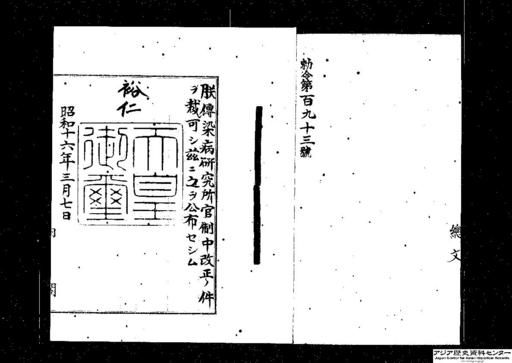 勅令第百九十三號
朕傳染病研究所官制中改正ノ件
ヲ裁可シ茲ニ之ヲ公布セシム
裕仁
天皇御璽
昭和十六年三月七日
內閣
總
文
アジア歴史資料センター
Japan Center for Asian Historical Records